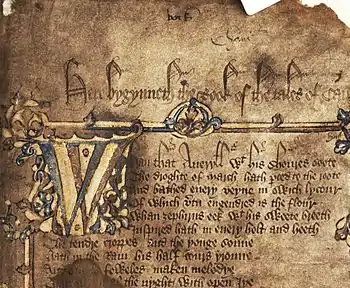 Here bygynneth the Book of the tales of
Whan that Aueryll wt his shoures soote
The droghte of march hath perced to the roote
And bathed euery veyne in swich lycour
Of which vtu engendred is the flour
Whan zephirus eek wt his sweete breeth
Inspired hath in euery holt and heeth
The tendre croppes and the yonge sonne
Hath in the Ram his half cours yronne
foweles maken melodye
al the nyght with open Iye